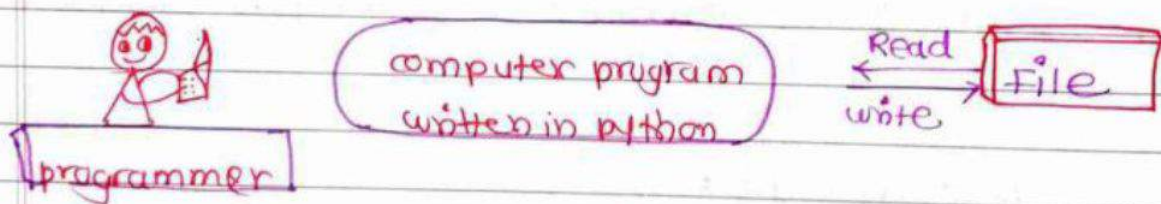 computer program
written in python
Read
write
File
programmer